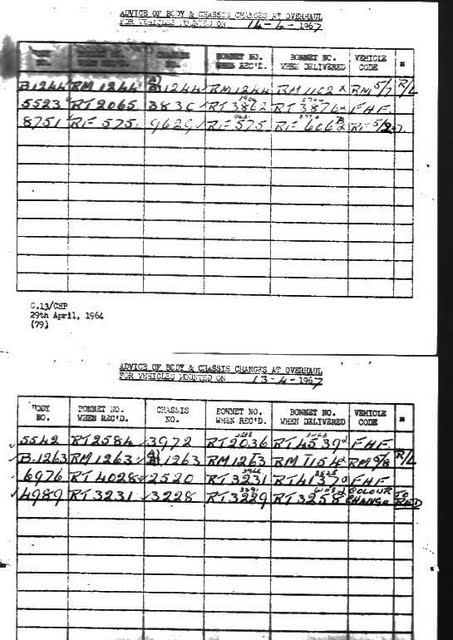 ADVICE OF BODY & CHASSIS CHANGES AT OVERHAUL
FOR VEHICLES MOUNTED ON 14-4-1967
NO. WHEN REC'D. NO. BONNET NO. WHEN REC'D. BONNET NO. WHEN DELIVERED VEHICLE CODE
B1244 RM 1244 B1244 RM1244 RM 1102 RM 5/7 R/L
5523 RT 2065 3830 RT 3862 RT 3876 FHF
8751 RF 575 9629 RF 575 RF 606 RF 5/2
C.13/CHP
29th April, 1964
(79)
ADVICE OF BODY & CHASSIS CHANGES AT OVERHAUL
FOR VEHICLES MOUNTED ON 13-4-1967
BODY NO. BONNET NO. WHEN REC'D. CHASSIS NO. BONNET NO. WHEN REC'D. BONNET NO. WHEN DELIVERED VEHICLE CODE
5542 RT2584 3972 RT2036 RT4539 FHF
B.1263 RM1263 1263 RM1263 RM 1154 RM 5/8 R/L
6976 RT 4028 2520 RT3231 RT4137 FHF
4989 RT3231 3228 RT3229 RT3258 COLOUR CHANGE TO RED